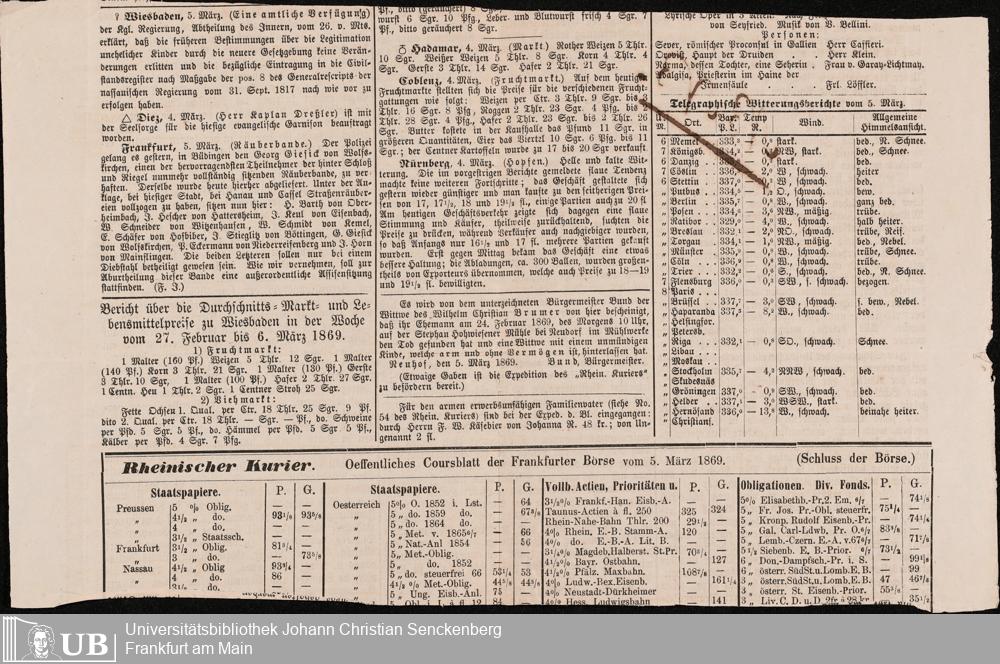 ? Wiesbaden, 5. März. (Eine amtliche Verfügung)
der Kgl. Regierung, Abtheilung des Innern, vom 26. v. Mts.
erklärt, daß die früheren Bestimmungen über die Legitimation
unehelicher Kinder durch die neuere Gesetzgebung keine Verän-
derungen erlitten und die bezügliche Eintragung in die Civil-
standsregister nach Maßgabe der pos. 8 des Generalrescripts der
nassauischen Regierung vom 31. Sept. 1817 nach wie vor zu
erfolgen haben.
△ Diez, 4. März. (Herr Kaplan Dreßler) ist mit
der Seelsorge für die hiesige evangelische Garnison beauftragt
worden.
Frankfurt, 5. März. (Räuberbande.) Der Polizei
gelang es gestern, im Büdingen den Georg Giesick von Wolfs-
kirchen, einen der hervorragendsten Theilnehmer der hinter Schloß
und Riegel nunmehr vollständig sitzenden Räuberbande, zu ver-
haften. Derselbe wurde heute hierher abgeliefert. Unter der An-
klage, bei hiesiger Stadt, bei Hanau und Cassel Straßenräube-
reien vollzogen zu haben, sitzen nun hier: H. Barth von Ober-
heimbach, J. Hescher von Hattersheim, J. Keul von Eisenbach,
W. Schneider von Witzenhausen, W. Schmidt von Kemel,
E. Schäfer von Hofbiber, J. Stieglitz von Böttingen, G. Giesick
von Wolfskirchen, P. Eckermann von Niederreifenberg und J. Horn
von Mainflingen. Die beiden Letzteren sollen nur bei einem
Diebstahl betheiligt gewesen sein. Wie wir vernehmen, soll zur
Aburtheilung dieser Bande eine außerordentliche Assisensitzung
stattfinden. (F. J.)
Bericht über die Durchschnitts-Markt- und Le-
bensmittelpreise zu Wiesbaden in der Woche
vom 27. Februar bis 6. März 1869.
1) Fruchtmarkt:
1 Malter (160 Pf.) Weizen 5 Thlr. 12 Sgr. 1 Malter
(140 Pf.) Korn 3 Thlr. 21 Sgr. 1 Malter (130 Pf.) Gerste
3 Thlr. 10 Sgr, 1 Malter (100 Pf.) Hafer 2 Thlr. 27 Sgr.
1 Centn. Heu 1 Thlr. 2 Sgr. 1 Centner Stroh 25 Sgr.
2) Viehmarkt:
Fette Ochsen 1. Qual. per Ctr. 18 Thlr. 25 Sgr. 9 Pf.
dito 2. Qual. per Ctr. 18 Thlr. — Sgr. — Pf., do. Schweine
per Pfd. 5 Sgr. 5 Pf., do. Hämmel per Pfd. 5 Sgr 5 Pf.,
Kälber per Pfd. 4 Sgr. 7 Pfg.
Pf., ditto (geräuchert) 8 Sgr.
wurst 6 Sgr. 10 Pfg., Leber- und Blutwurst frisch 4 Sgr. 7
Pf., ditto geräuchert 8 Sgr.
Hadamar, 4. März. (Markt.) Rother Weizen 5 Thlr.
10 Sgr. Weißer Weizen 5 Thlr. 8 Sgr. Korn 4 Thlr. 4
Sgr. Gerste 3 Thlr. 14 Sgr. Hafer 2 Thlr. 21 Sgr.
Coblenz, 4. März. (Fruchtmarkt.) Auf dem heutigen
Fruchtmarkte stellten sich die Preise für die verschiedenen Frucht-
gattungen wie folgt: Weizen per Ctr. 3 Thlr. 9 Sgr. bis 3
Thlr. 16 Sgr. 8 Pfg, Roggen 2 Thlr. 23 Sgr. 4 Pfg. bis 2
Thlr. 28 Sgr. 4 Pfg., Hafer 2 Thlr. 23 Sgr. bis 2 Thlr. 26
Sgr. Butter kostete in der Kaufhalle das Pfund 11 Sgr. in
größeren Quantitäten, Eier das Viertel 10 Sgr. 6 Pfg. bis 11
Sgr.; der Centner Kartoffeln wurde zu 17 bis 20 Sgr. verkauft.
Nürnberg, 4. März. (Hopfen.) Helle und kalte Wit-
terung. Die im vorgestrigen Berichte gemeldete flaue Tendenz
machte keine weiteren Fortschritte; das Geschäft gestaltete sich
gestern wieder günstiger und man kaufte zu den seitherigen Prei-
sen von 17, 17½, 18 und 19½ fl., einige Partien auch zu 20 fl
Am heutigen Geschäftsverkehr zeigte sich dagegen eine flaue
Stimmung und Käufer, theilweise zurückhaltend, suchten die
Preise zu drücken, während Verkäufer auch nachgiebiger wurden,
so daß Anfangs nur 16½ und 17 fl. mehrere Partien gekauft
wurden. Erst gegen Mittag bekam das Geschäft eine etwas
bessere Haltung; die Abladungen, ca. 300 Ballen, wurden großen-
theils von Exporteurs übernommen, welche auch Preise zu 18—19
und 19½ fl. bewilligten.
Es wird von dem unterzeichneten Bürgermeister Bund der
Wittwe des Wilhelm Christian Brumer von hier bescheinigt,
daß ihr Ehemann am 24. Februar 1869, des Morgens 10 Uhr,
auf der Stephan Hohwiesener Mühle bei Neudorf im Mühlwerke
den Tod gefunden hat und eine Wittwe mit einem unmündigen
Kinde, welche arm und ohne Vermögen ist, hinterlassen hat.
Neuhof, den 5. März 1869. Bund, Bürgermeister.
(Etwaige Gaben ist die Expedition des „Rhein. Kuriers“
zu befördern bereit.)
Für den armen erwerbsunfähigen Familienvater (siehe No.
54 des Rhein. Kuriers) sind bei der Exped. d. Bl. eingegangen:
durch Herrn F. W. Käsebier von Johanna R. 48 kr.; von Un-
genannt 2 fl.
von Seyfried. Musik von B. Bellini.
Personen:
Sever, römischer Proconsul in Gallien Herr Caffieri.
Orovist, Haupt der Druiden Herr Klein.
Norma, dessen Tochter, eine Seherin Frau v. Garay-Lichtmay.
Adalgisa, Priesterin im Haine der
Irmensäule Frl. Löffler.
Telegraphische Witterungsberichte vom 5. März.
Ort. Bar. P. L. Temp R. Wind. Allgemeine Himmelsansicht.
6 Memel 333, stark. bed., N. Schnee.
7 Königsb. 334, NW., stark. bed., Schnee.
6 Danzig stark. bed.
7 Cöslin 336, W., schwach. heiter
6 Stettin 337, W., schwach. bed.
„ Putbus 334, O., schwach. bew.
„ Berlin 335, W., schwach. ganz bed.
„ Posen 334, NW., mäßig. trübe.
„ Ratibor 329, W., schwach. halb heiter.
„ Breslau 332, NO., schwach. trübe, Reif.
„ Torgau 334, NW., mäßig. bed., Nebel.
„ Münster 335, W., schwach. trübe, N. Schnee.
„ Cöln 336, W., schwach. trübe.
„ Trier 332, S., schwach. bed., N. Schnee.
7 Flensburg 336, SW., f. schwach. bezogen.
8 Paris
„ Brüssel 337, SW., schwach. f. bew., Nebel.
„ Haparanda 337, W., schwach. bed.
„ Helsingfor.
„ Petersb.
„ Riga 332, SO., schwach. Schnee.
„ Libau
„ Moskau
„ Stockholm 335, NNW., schwach. bed.
„ Skudesnäs
„ Gröningen 337, SW., schwach. bed.
„ Helder 337, WSW., stark. bed.
„ Hernösand 336, W., schwach. beinahe heiter.
„ Christians.
Rheinischer Kurier. Oeffentliches Coursblatt der Frankfurter Börse vom 5. März 1869. (Schluss der Börse.)
Staatspapiere. P. G.
Preussen 5 % Oblig. — —
„ 4½ „ do. 93⅛ 93⅜
„ 4 „ do. — —
„ 3½ „ Staatssch. — —
Frankfurt 3½ „ Oblig. 81¾ —
„ 3 „ do. — 73⅜
Nassau 4½ „ Oblig 93¾ —
„ 4 „ do. 86 —
„ 3½ „ do.
Staatspapiere. P. G.
Oesterreich 5% O. 1852 i. Lst. — 64
„ 5 „ do. 1859 do. — 67⅜
„ 5 „ do. 1864 do. — —
„ 5 „ Met. v. 1865 — 66
„ 5 „ Nat.-Anl 1854 — 56
„ 5 „ Met.-Oblig. — —
„ 5 „ do. 1852 — —
„ 5 „ do. steuerfrei 66 53¼ 53
„ 4½% do. Met.-Oblig. 44⅝ 44⅜
„ 5 „ Ung. Eisb.-Anl. 75 —
Vollb. Actien, Prioritäten u. P. G.
3½% Frankf.-Han. Eisb.-A.
Taunus-Actien à fl. 250 325 324
Rhein-Nahe-Bahn Thlr. 200 29½ —
4% Rhein. E.-B. Stamm-A. 120 —
4% do. E.-B.-A. Lit. B. — —
3½% Magdeb. Halberst. St.Pr. 70¾ —
4½% Bayr. Ostbahn. — 127
4½% Pfälz. Maxbahn. 108⅞ —
4% Ludw.-Bex. Eisenb. — 161¼
4% Neustadt-Dürkheimer — —
4% Hess. Ludwigsbahn — 141
Obligationen. Div. Fonds. P. G.
5% Elisabethb.-Pr, 2. Em. — 74⅛
5 „ Fr. Jos. Pr.-Obl. steuerfr. 75¼ —
5 „ Kronp. Rudolf Eisenb.-Pr. — 74¼
5 „ Gal. Carl-Ldwb. Pr. O. 83⅛ —
5 „ Lemb.-Czern. E.-A. v.67 — 71⅞
5½ Siebenb. E. B.-Prior. 73½ —
6 „ Don.-Dampfsch.-Pr. i. S. —
6 „ österr. SüdSt. u. Lomb. E. B. — 99
3 „ österr. SüdSt. u. Lomb. E. B. 47
3 „ österr. St. Eisenb.-Prior.
3 „ Liv. C. D. u. D.
UB
Universitätsbibliothek Johann Christian Senckenberg
Frankfurt am Main